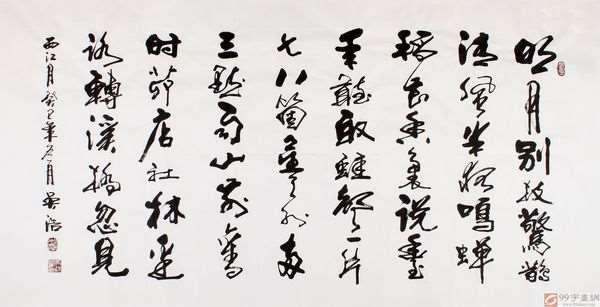 明月别枝驚鵲
清風半夜鳴蟬
稻花香裏說豐
年聽取蛙聲一片
七八箇星天外兩
三點雨山前舊
時茆店社林邊
路轉溪橋忽見
西江月癸巳年月
99字畫網